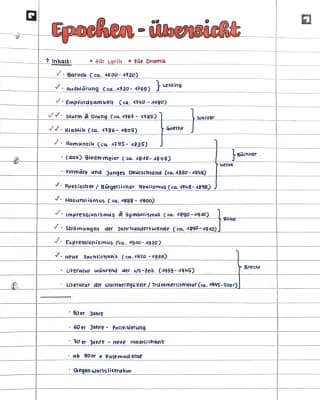 Epochen - übersicht
↑ Inhalt: * für Lyrik * für Drama
✓ · Barock (ca. 1600 - 1720)
✓ · Aufklärung (ca. 1720 - 1785) } Lessing
✓ · Empfindsamkeit (ca. 1740 - 1780)
✓✓ · Sturm & Drang (ca. 1767 - 1785)
Schiller
✓✓ · Klassik (ca. 1786 - 1805)
Goethe
✓ · Romantik (ca. 1795 - 1835)
· (dav.) Biedermeier (ca. 1815 - 1848)
Büchner
Heine
· Vormärz und Junges Deutschland (ca. 1830 - 1848)
✓ · Poetischer / Bürgerlicher Realismus (ca. 1848 - 1890)
✓ · Naturalismus (ca. 1880 - 1900)
✓ · Impressionismus & Symbolismus (ca. 1890 - 1910)
Rilke
✓ · Strömungen der Jahrhundertwende (ca. 1890 - 1910)
✓ · Expressionismus (ca. 1910 - 1925)
✓ · neue Sachlichkeit (ca. 1920 - 1933)
Brecht
· Literatur während der NS-Zeit (1933 - 1945)
· Literatur der Nachkriegszeit / Trümmerliteratur (ca. 1945 - 1950)
· 50er Jahre
· 60er Jahre - Politisierung
· 70er Jahre - neue Innerlichkeit
· ab 80er + Postmoderne
· Gegenwartsliteratur